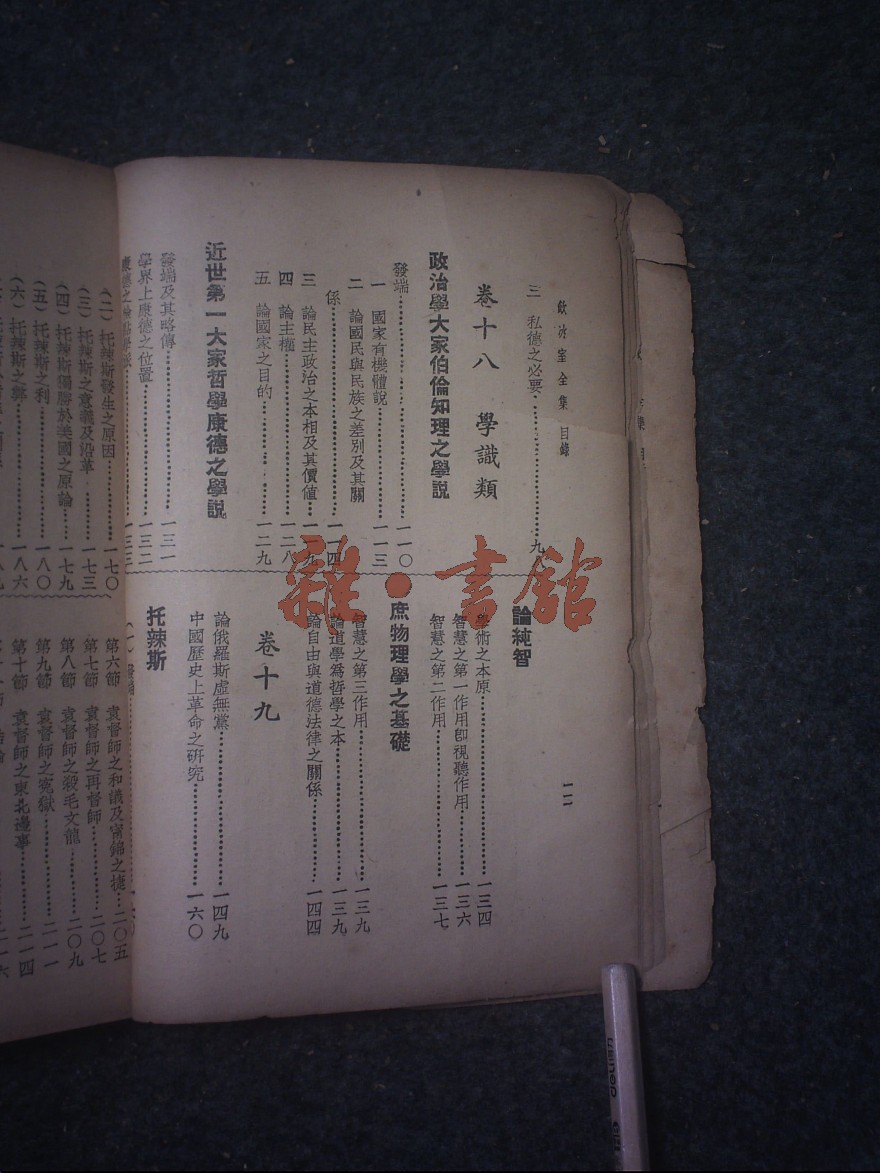 飲冰室全集 目錄
一一
三 私德之必要⋯⋯九
卷十八 學識類
政治學大家伯倫知理之學說
發端⋯⋯一一〇
一 國家有機體說⋯⋯一一三
二 論國民與民族之差別及其關
係⋯⋯一一四
三 論民主政治之本相及其價値⋯⋯一一九
四 論主權⋯⋯一二八
五 論國家之目的⋯⋯一二九
近世第一大家哲學康德之學說
發端及其略傳⋯⋯一三一
學界上康德之位置⋯⋯一三二
論純智
學術之本原⋯⋯一三四
智慧之第一作用卽視聽作用⋯⋯一三六
智慧之第二作用⋯⋯一三七
庶物理學之基礎
智慧之第三作用⋯⋯一三九
論道學爲哲學之本⋯⋯一三九
論自由與道德法律之關係⋯⋯一四四
卷十九
論俄羅斯虛無黨⋯⋯一四九
中國歷史上革命之研究⋯⋯一六〇
托辣斯
(二) 托辣斯發生之原因⋯⋯一七〇
(三) 托辣斯之意義及沿革⋯⋯一七三
(四) 托辣斯獨勝於美國之原論⋯⋯一七九
(五) 托辣斯之利⋯⋯一八〇
(六) 托辣斯之弊⋯⋯一八六
第六節 袁督師之和議及甯錦之捷⋯⋯二〇五
第七節 袁督師之再督師⋯⋯二〇七
第八節 袁督師之殺毛文龍⋯⋯二〇九
第九節 袁督師之冤獄⋯⋯二一一
第十節 袁督師之東北邊事⋯⋯二一四
雜·書館
deli